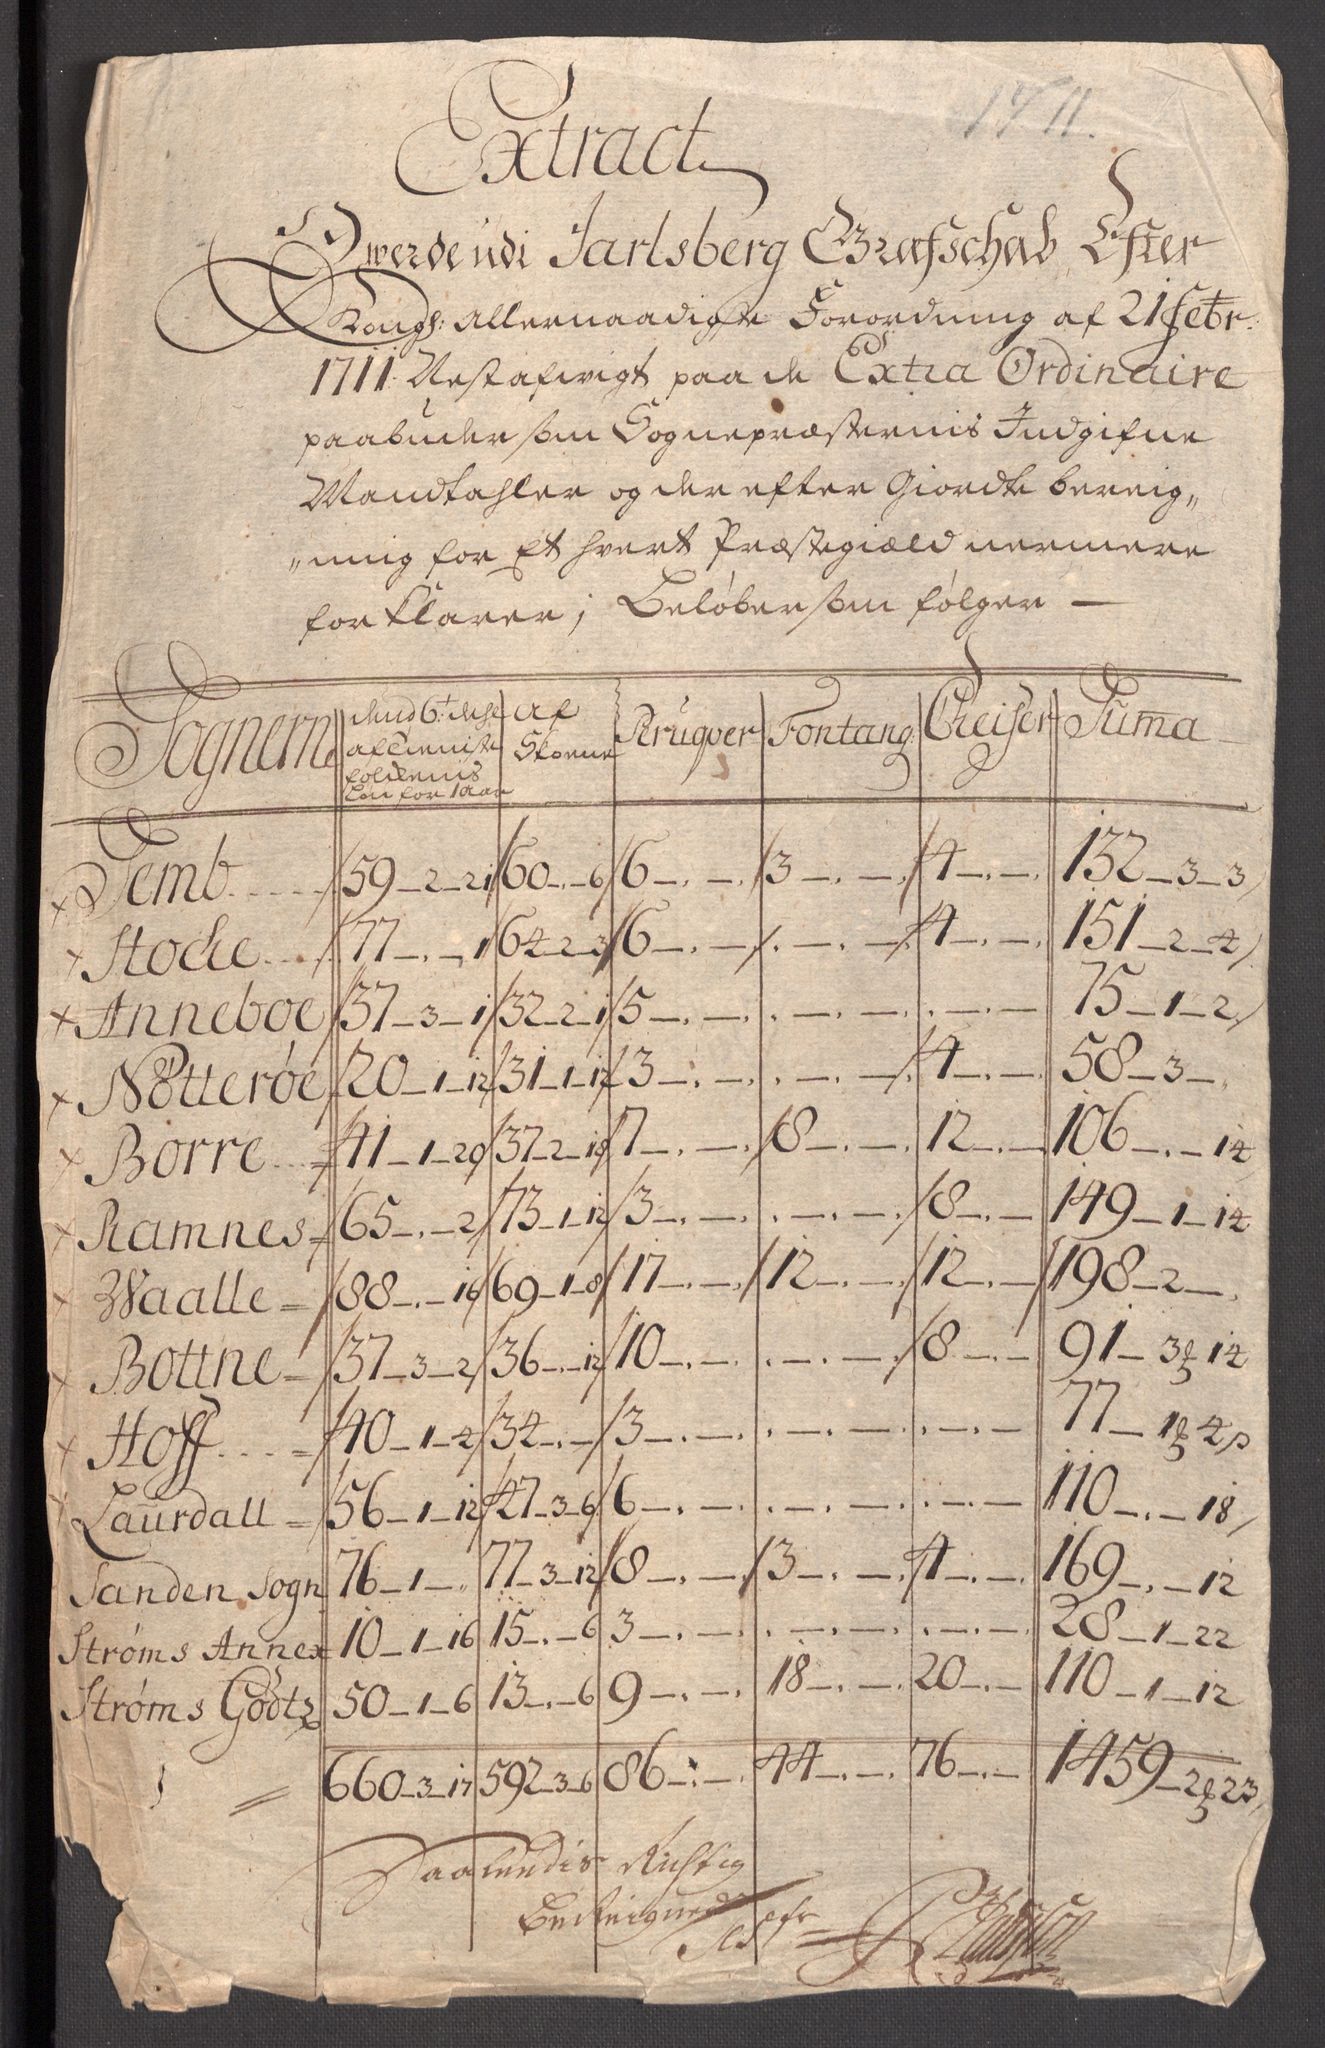 1711.
Extract
Hwerdendi Jarlsberg Grafschab Efter
Kongl: Allernaadigste Forordning af 21 febr:
1711. Est afwigt paa de Extra Ordinaire
paabuder som Sognepræsternis Indgifne
Mandtahler og der efter Giordte bereig„
„ning for Et hvert Præstegiæld nermere
forklarer, Beløber som følger —
Sognerne | dend 6te dehl af tieniste folckenis Løn for 1 Aar | Af Skoene | Paruqver | Fontang: | Cheiser | Suma
× Semb | 59 - 2 - 21 | 60 - . - 6 | 6 - . - . | 3 - . - . | 4 - . - . | 132 - 3 - 3
× Stocke | 77 - . - 1 | 64 - 2 - 3 | 6 - . - . | . - . - . | 4 - . - . | 151 - 2 - 4
× Anneboe | 37 - 3 - 1 | 32 - 2 - 1 | 5 - . - . | . - . - . | . - . - . | 75 - 1 - 2
× Nøtterøe | 20 - 1 - 12 | 31 - 1 - 12 | 3 - . - . | . - . - . | 4 - . - . | 58 - 3 - .
× Borre | 41 - 1 - 20 | 37 - 2 - 18 | 7 - . - . | 8 - . - . | 12 - . - . | 106 - . - 14
× Ramnes | 65 - . - 2 | 73 - 1 - 12 | 3 - . - . | . - . - . | 8 - . - . | 149 - 1 - 14
× Waalle | 88 - . - 16 | 69 - 1 - 8 | 17 - . - . | 12 - . - . | 12 - . - . | 198 - 2 - .
× Bottne | 37 - 3 - 2 | 36 - . - 12 | 10 - . - . | . - . - . | 8 - . - . | 91 - 3 - 14
× Hoff | 40 - 1 - 4 | 34 - . - . | 3 - . - . | . - . - . | . - . - . | 77 - 1 - 4
Laurdall | 56 - 1 - 12 | 47 - 3 - 6 | 6 - . - . | . - . - . | . - . - . | 110 - . - 18
Sanden Sogn | 76 - 1 - . | 77 - 3 - 12 | 8 - . - . | 3 - . - . | 4 - . - . | 169 - . - 12
Strøms Annex | 10 - 1 - 16 | 15 - . - 6 | 3 - . - . | . - . - . | . - . - . | 28 - 1 - 22
Strøms Godtz | 50 - 1 - 6 | 13 - . - 6 | 9 - . - . | 18 - . - . | 20 - . - . | 110 - 1 - 12
660 - 3 - 17 | 592 - 3 - 6 | 86 - . - . | 44 - . - . | 76 - . - . | 1459 - 2 - 23
Saaledis Rigtig
Bereignet